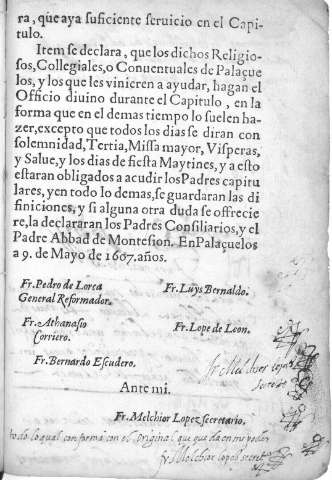 ra, que aya suficiente seruicio en el Capi-
tulo.
Item se declara, que los dichos Religio-
sos, Collegiales, o Conuentuales de Palaçue
los, y los que les vinieren a ayudar, hagan el
Officio diuino durante el Capitulo, en la
forma que en el demas tiempo lo suelen ha-
zer, excepto que todos los dias se diran con
solemnidad, Tertia, Missa mayor, Visperas,
y Salue, y los dias de fiesta Maytines, y a esto
estaran obligados a acudir los Padres capitu
lares, y en todo lo demas, se guardaran las di
finiciones, y si alguna otra duda se offrecie
re, la declararan los Padres Consiliarios, y el
Padre Abbad de Montesion. En Palaçuelos
a 9. de Mayo de 1607. años.
Fr. Pedro de Lorca
General Reformador.
Fr. Luys Bernaldo.
Fr. Athanasio
Corriero.
Fr. Lope de Leon.
Fr. Bernardo Escudero.
fr Melchior lopez
secret
Ante mi.
Fr. Melchior Lopez secretario.
todo lo qual conforma con el original que queda en mi poder
fr Melchior lopez secret